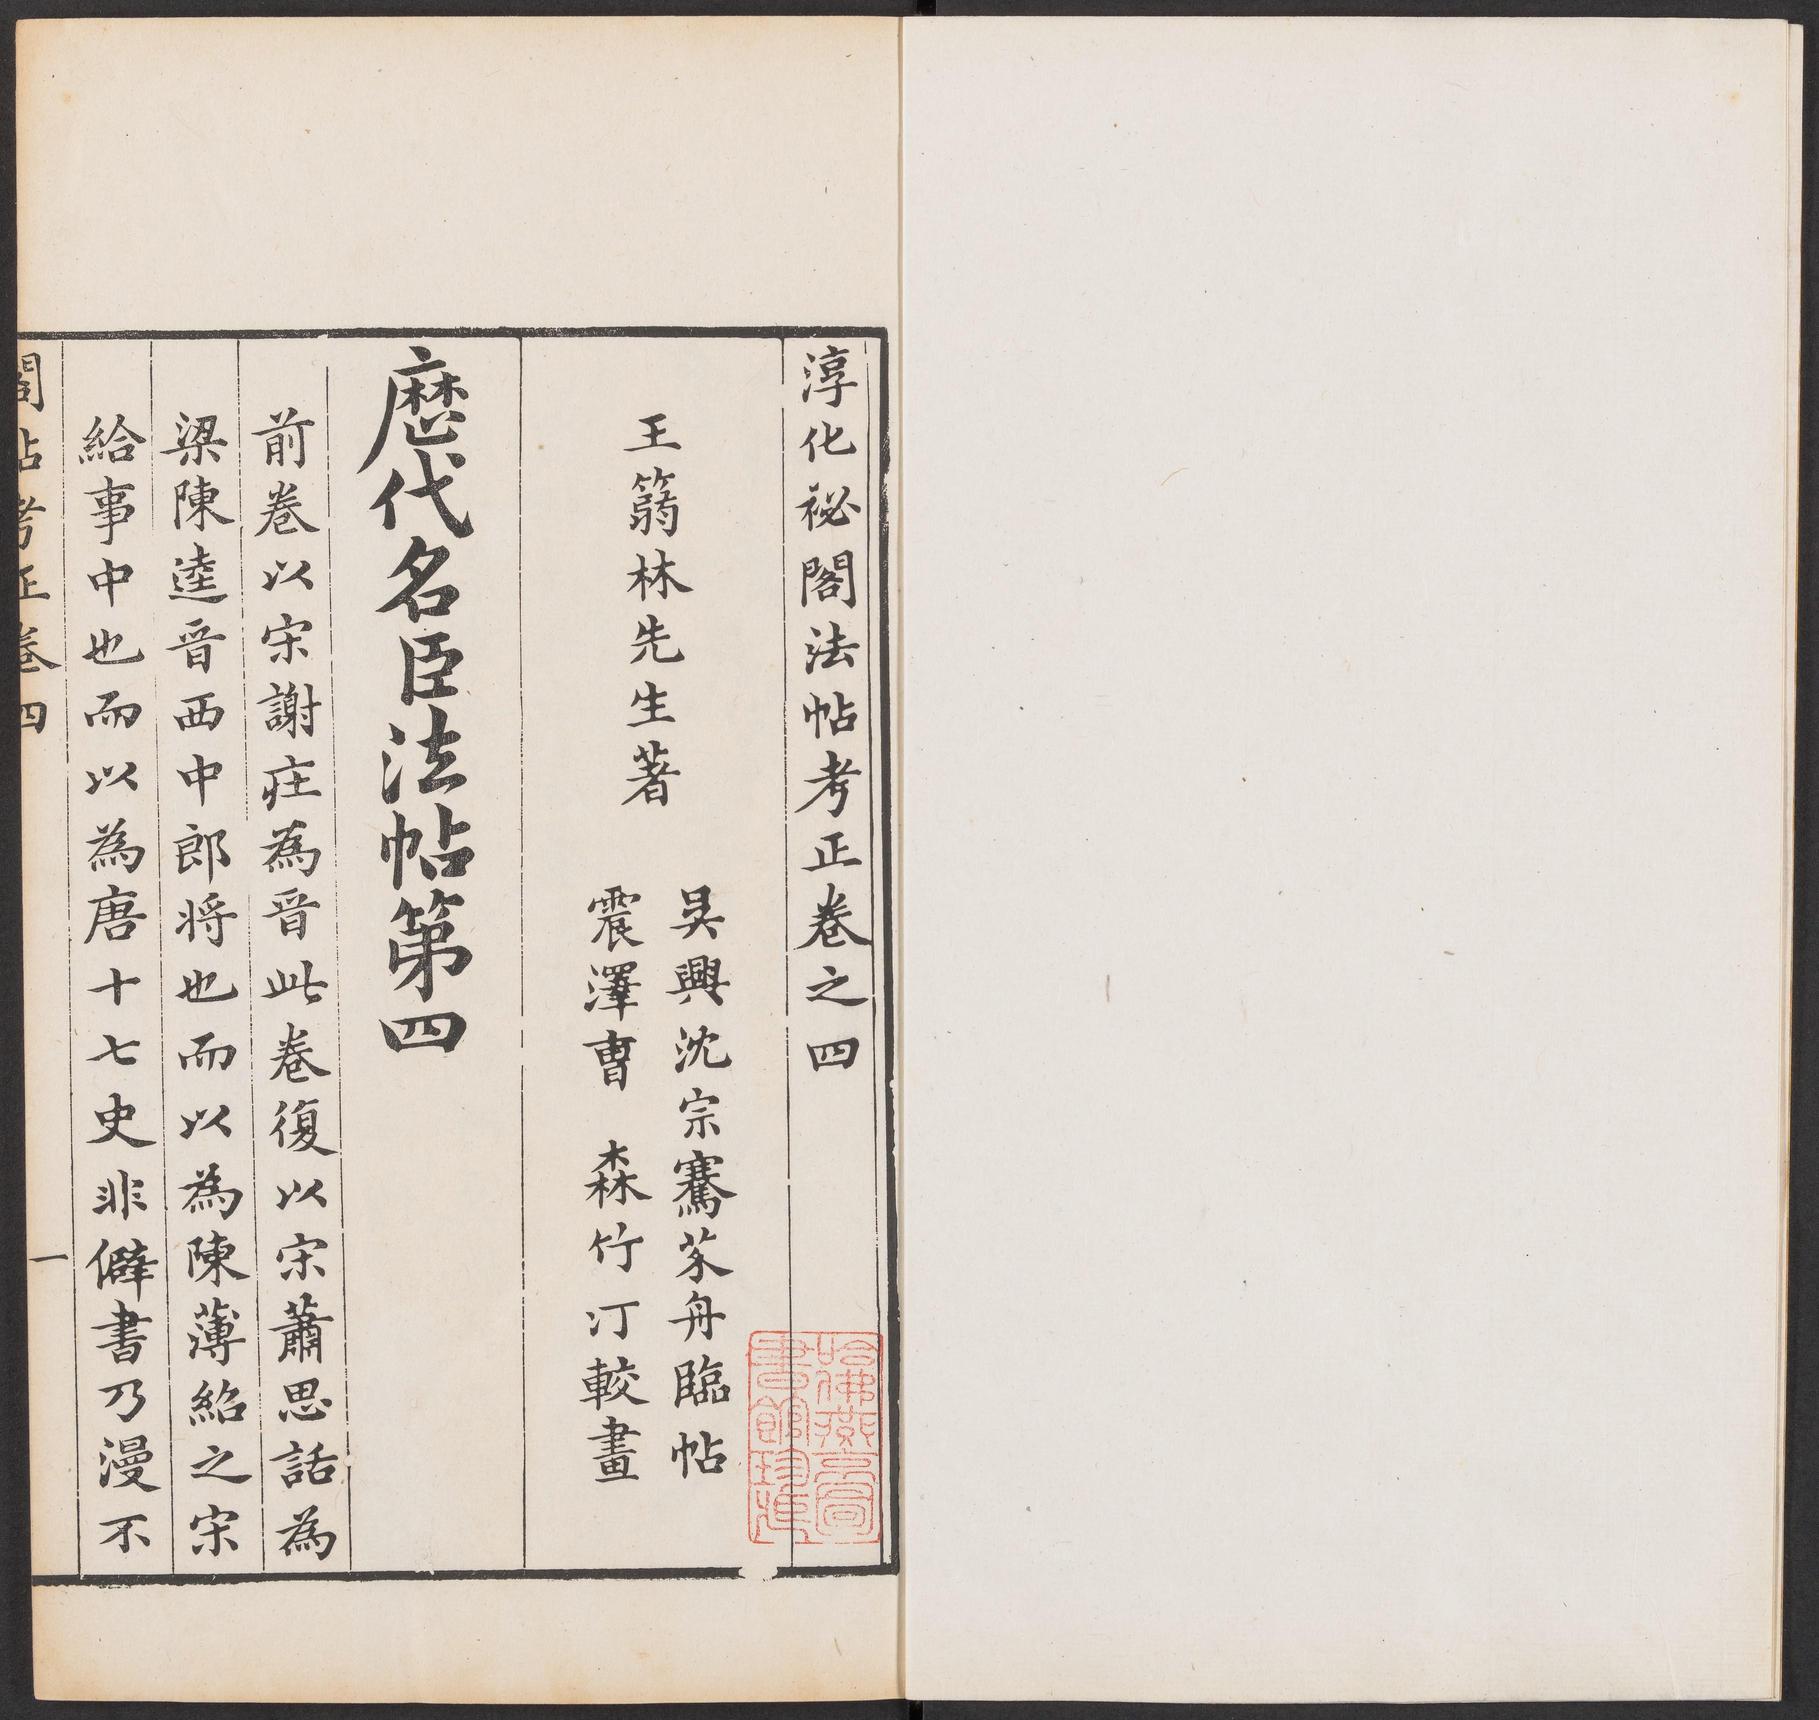 淳化祕閣法帖考正卷之四
王蒻林先生著
吳興沈宗騫芥舟臨帖
震澤曺 森竹汀較畫
歷代名臣法帖第四
前卷以宋謝庄為晉此卷復以宋蕭思話為
梁陳逵晉西中郎將也而以為陳薄紹之宋
給事中也而以為唐十七史非僻書乃漫不
閣帖考正卷四
一
哈佛燕京圖
書館珍藏